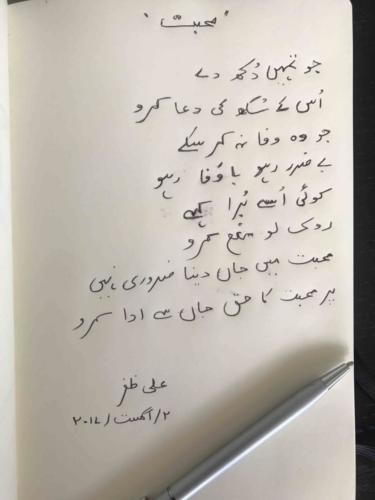 "محبت"
جو تمہیں دُکھ دے
اُس کے سُکھ کی دعا کرو
جو وہ وفا نہ کر سکے
بے ضرر رہو با وفا رہو
کوئی اُسے بُرا کہے
روک لو منع کرو
محبت میں جاں دینا ضروری نہیں
پر محبت کا حق جاں سے ادا کرو
علی ظفر
۲/اگست/۲۰۱۷